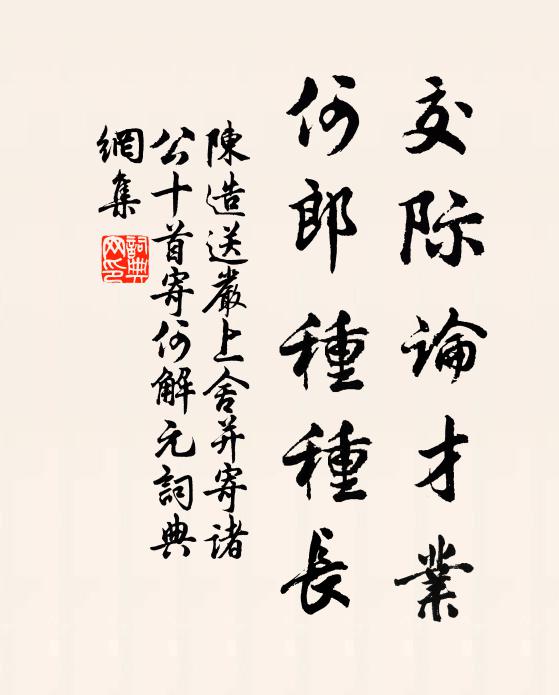 交际論才業
何郎種種長
陳造送嚴上舍并寄諸
公十首寄何解元詞典
網集
詞典网印